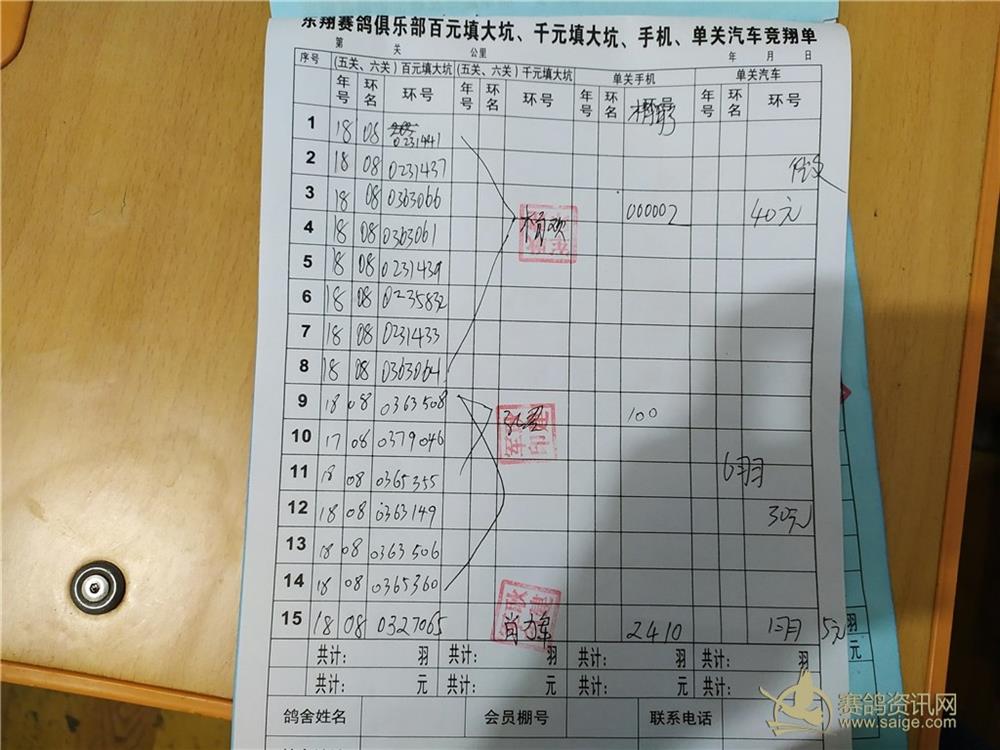 东翔赛鸽俱乐部百元填大坑、千元填大坑、手机、单关汽车竞翔单
第 关 公里 年 月 日
序号 (五关、六关)百元填大坑 (五关、六关)千元填大坑 单关手机 单关汽车
年号 环名 环号 年号 环名 环号 年号 环名 环号 年号 环名 环号
1 18 08 0231441
2 18 08 0231437
3 18 08 0363066 000002 40元
4 18 08 0363061
5 18 08 0231439
6 18 08 0235832
7 18 08 0231433
8 18 08 0363064
9 18 08 0363508 100
10 17 08 0379046
11 18 08 0365355 6羽
12 18 08 0363149 30元
13 18 08 0363506
14 18 08 0365360
15 18 08 0327065 2410 5元 羽
共计: 羽 共计: 共计: 羽 共计: 羽 元
共计: 元 共计: 共计: 元 共计:
鸽舍姓名 会员棚号 联系电话
赛鸽资讯网
www.saige.com